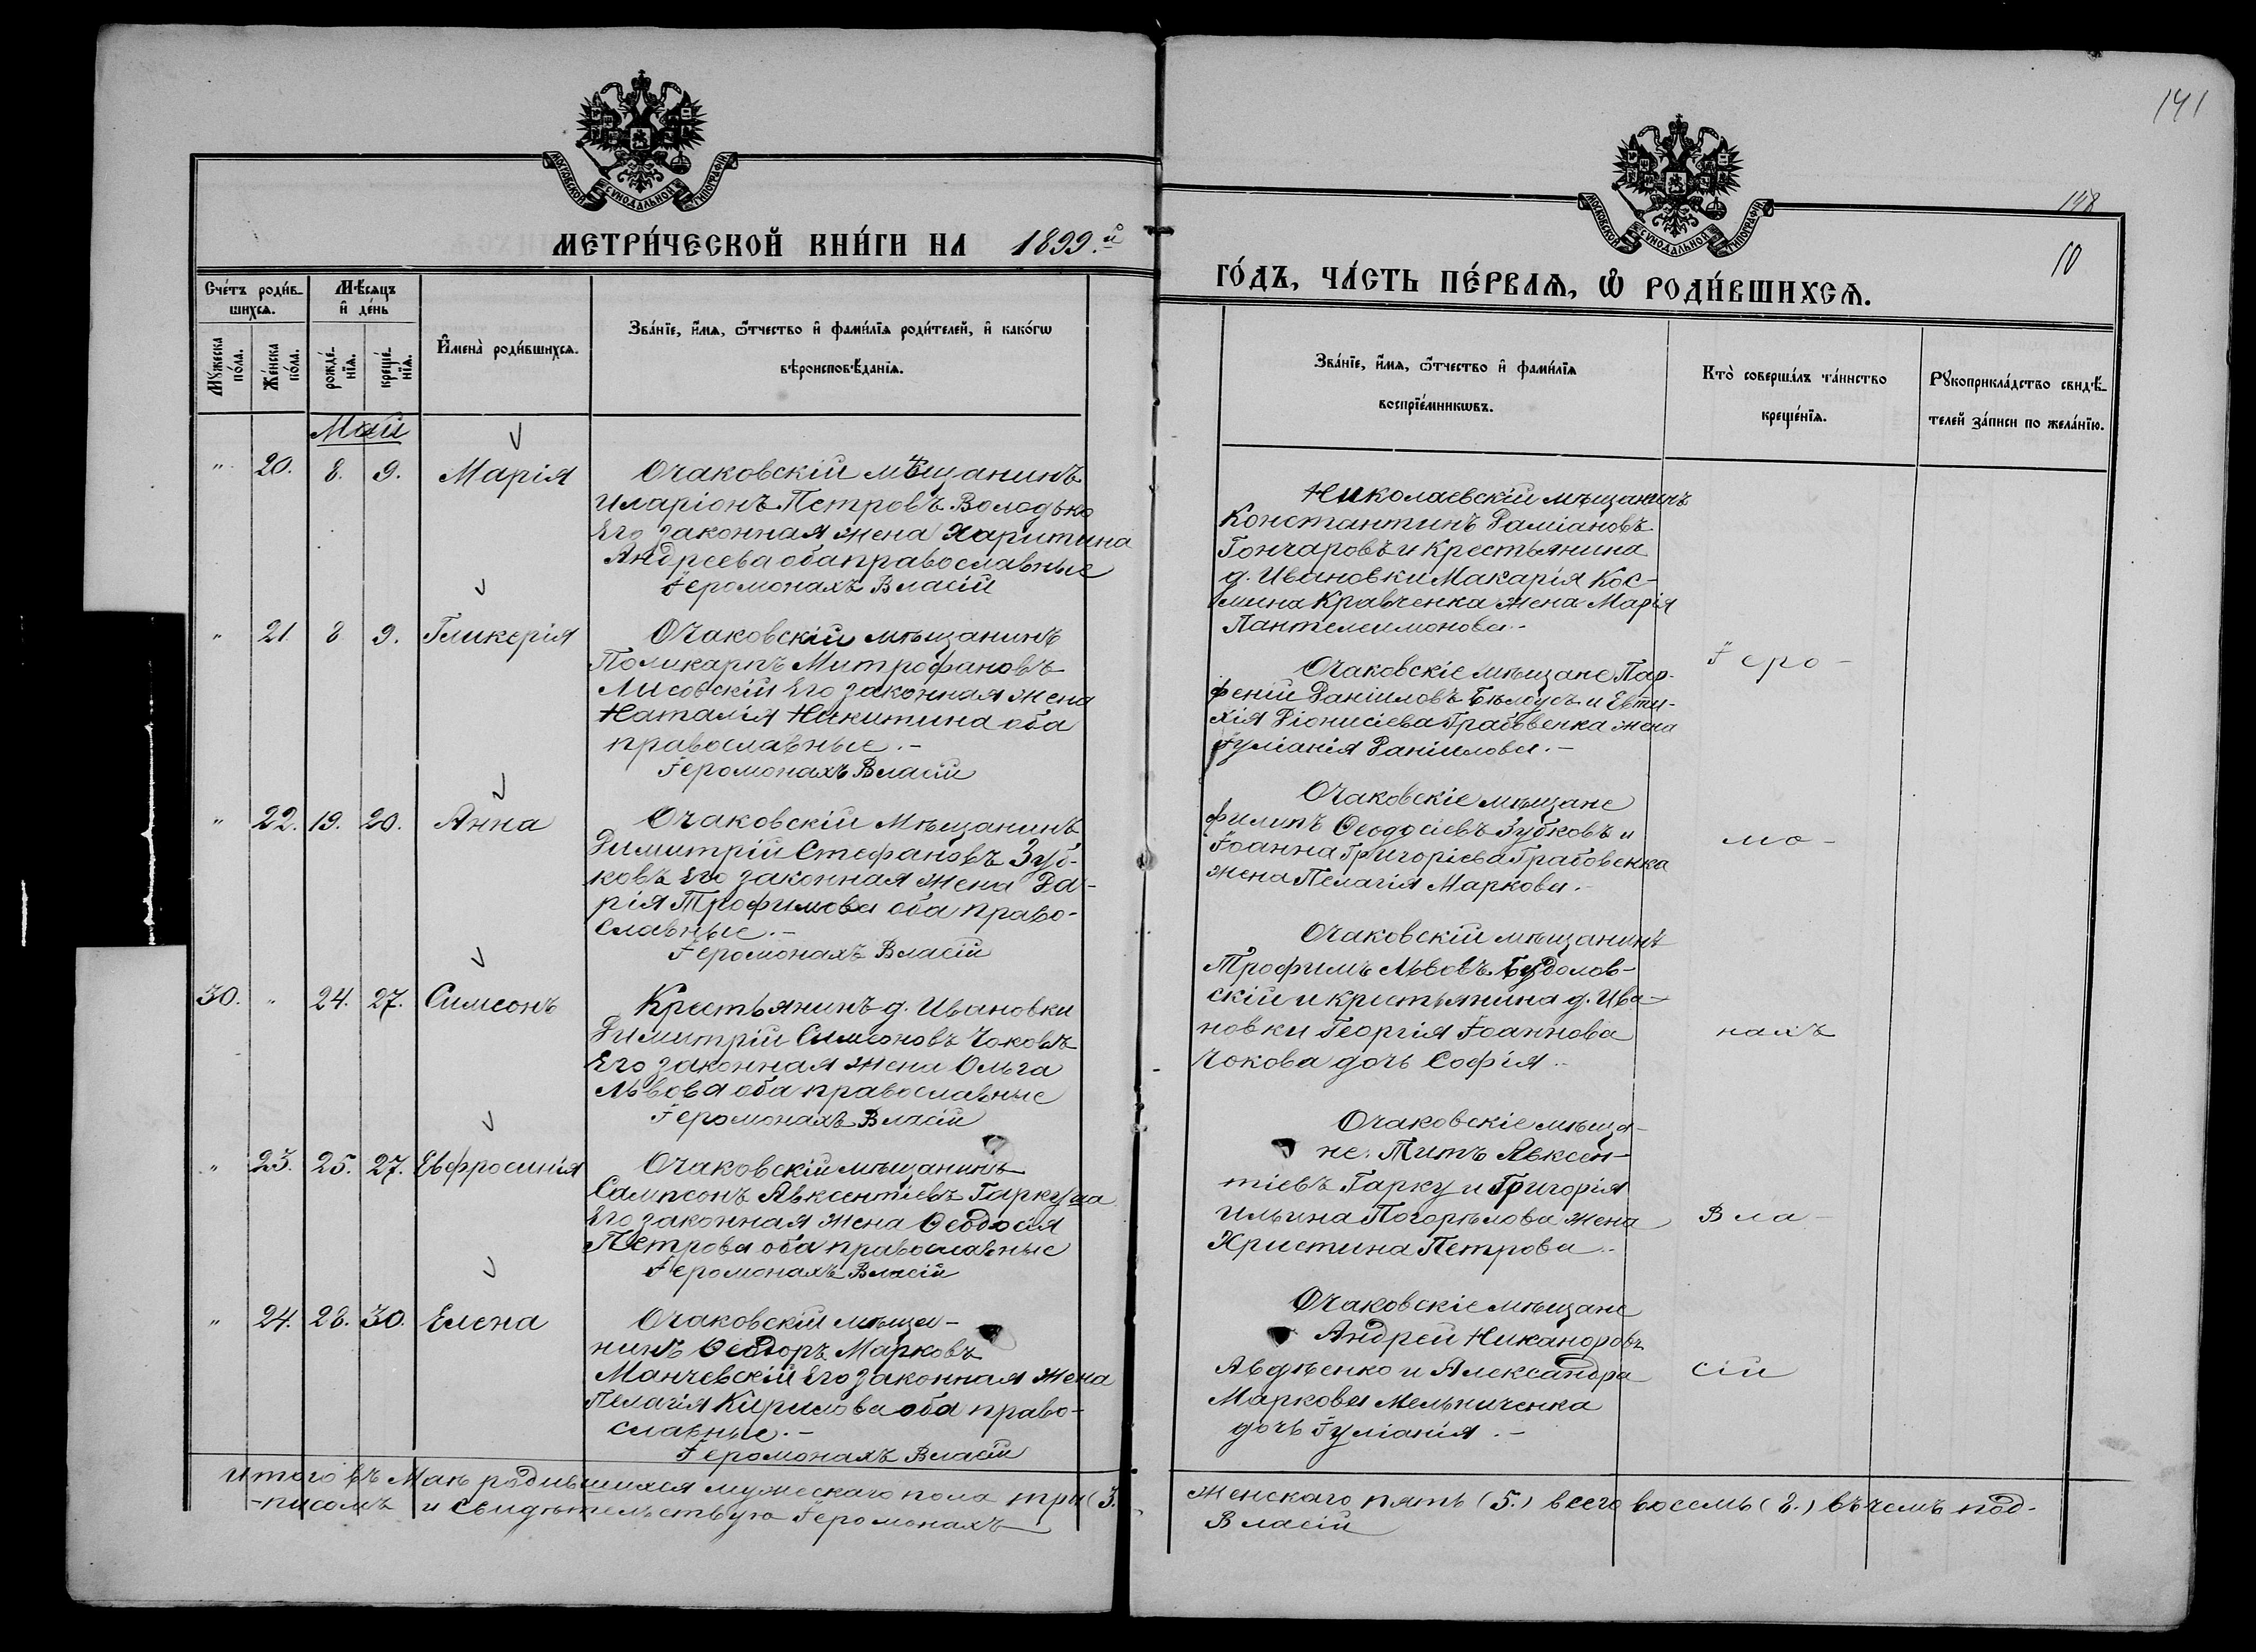 141
МОСКОВСКОЙ СѴНОДАЛЬНОЙ ТИПОГРАФІИ
МОСКОВСКОЙ СѴНОДАЛЬНОЙ ТИПОГРАФІИ
148
10
МЕТРИ́ЧЕСКОЙ КНИ́ГИ НА 1899.й
ГО́ДЪ, ЧА́СТЬ ПЕ́РВАѦ, Ѡ҆ РОДИ́ВШИХСѦ.
Сче́тъ роди́в-
шихсѧ.
Мѣ́сѧцъ
и҆ де́нь
Мꙋ́жеска
по́ла.
Же́нска
по́ла.
рожде́-
нїѧ.
креще́-
нїѧ.
И҆мена̀ роди́вшихсѧ.
Зва́нїе, и҆́мѧ, ѻ҆́тчество и҆ фами́лїѧ роди́телей, и҆ како́гѡ
вѣроисповѣ́данїѧ.
Зва́нїе, и҆́мѧ, ѻ҆́тчество и҆ фами́лїѧ
воспрїе́мникѡвъ.
Кто̀ соверша́лъ та́инство
креще́нїѧ.
Рꙋкоприкла́дство свидѣ́-
телей за́писи по жела́нїю.
Май
" 20. 8. 9. Марія
Очаковскій мѣщанинъ
Иларіонъ Петровъ Володько
Его законная жена Харитина
Андреева оба православные
Іеромонахъ Власій
Николаевскій мѣщанинъ
Константинъ Даміановъ
Гончаровъ и крестьянина
д. Ивановки Макарія Кос-
мина Кравченка жена Марія
Пантелеимонова.-
" 21 8 9. Гликерія
Очаковскій мѣщанинъ
Поликарпъ Митрофановъ
Лисовскій Его законная жена
Наталія Никитина оба
православные.-
Іеромонахъ Власій
Очаковскіе мѣщане Пар-
феній Даніиловъ Бѣлоусъ и Евти-
хія Діонисіева Грабовенка жена
Іуліанія Даніилова.-
Іеро-
" 22. 19. 20. Анна
Очаковскій Мѣщанинъ
Димитрій Стефановъ Зуб-
ковъ Его законная жена Да-
рія Трофимова оба право-
славные.-
Іеромонахъ Власій
Очаковскіе мѣщане
Филипъ Ѳеодосіевъ Зубковъ и
Іоанна Григоріева Грабовенка
жена Пелагія Маркова.-
мо-
30. " 24. 27. Симеонъ
Крестьянинъ д. Ивановки
Димитрій Симеоновъ Чоковъ
Его законная жена Ольга
Львова оба православные
Іеромонахъ Власій
Очаковскій мѣщанинъ
Трофимъ Львовъ
скій и крестьянина д. Ива-
новки Георгія Іоаннова
Чокова дочь Софія..
нахъ
" 23. 25. 27. Евфросинія
Очаковскій мѣщанинъ
Сампсонъ Авксентіевъ Гаркуша
Его законная жена Ѳеодосія
Петрова оба православные
Іеромонахъ Власій
Очаковскіе мѣща-
не: Титъ Авксен-
тіевъ Гарку и Григорія
Ильина Погорѣлова жена
Христина Петрова..
Вла-
" 24. 28. 30. Елена
Очаковскій мѣща-
нинъ Ѳеодоръ Марковъ
Манчевскій Его законная жена
Пелагія Кирилова оба право-
славные.-
Іеромонахъ Власій
Очаковскіе мѣщане
Андрей Никаноровъ
Авдѣенко и Александра
Маркова Мельниченка
дочь Іуліанія.-
сій
Итого въ Маѣ родившихся мужескаго пола три (3.
женскаго пять (5.) всего восемь (8.) въ чемъ под-
-писомъ и свидѣтельствую Іеромонахъ
Власій